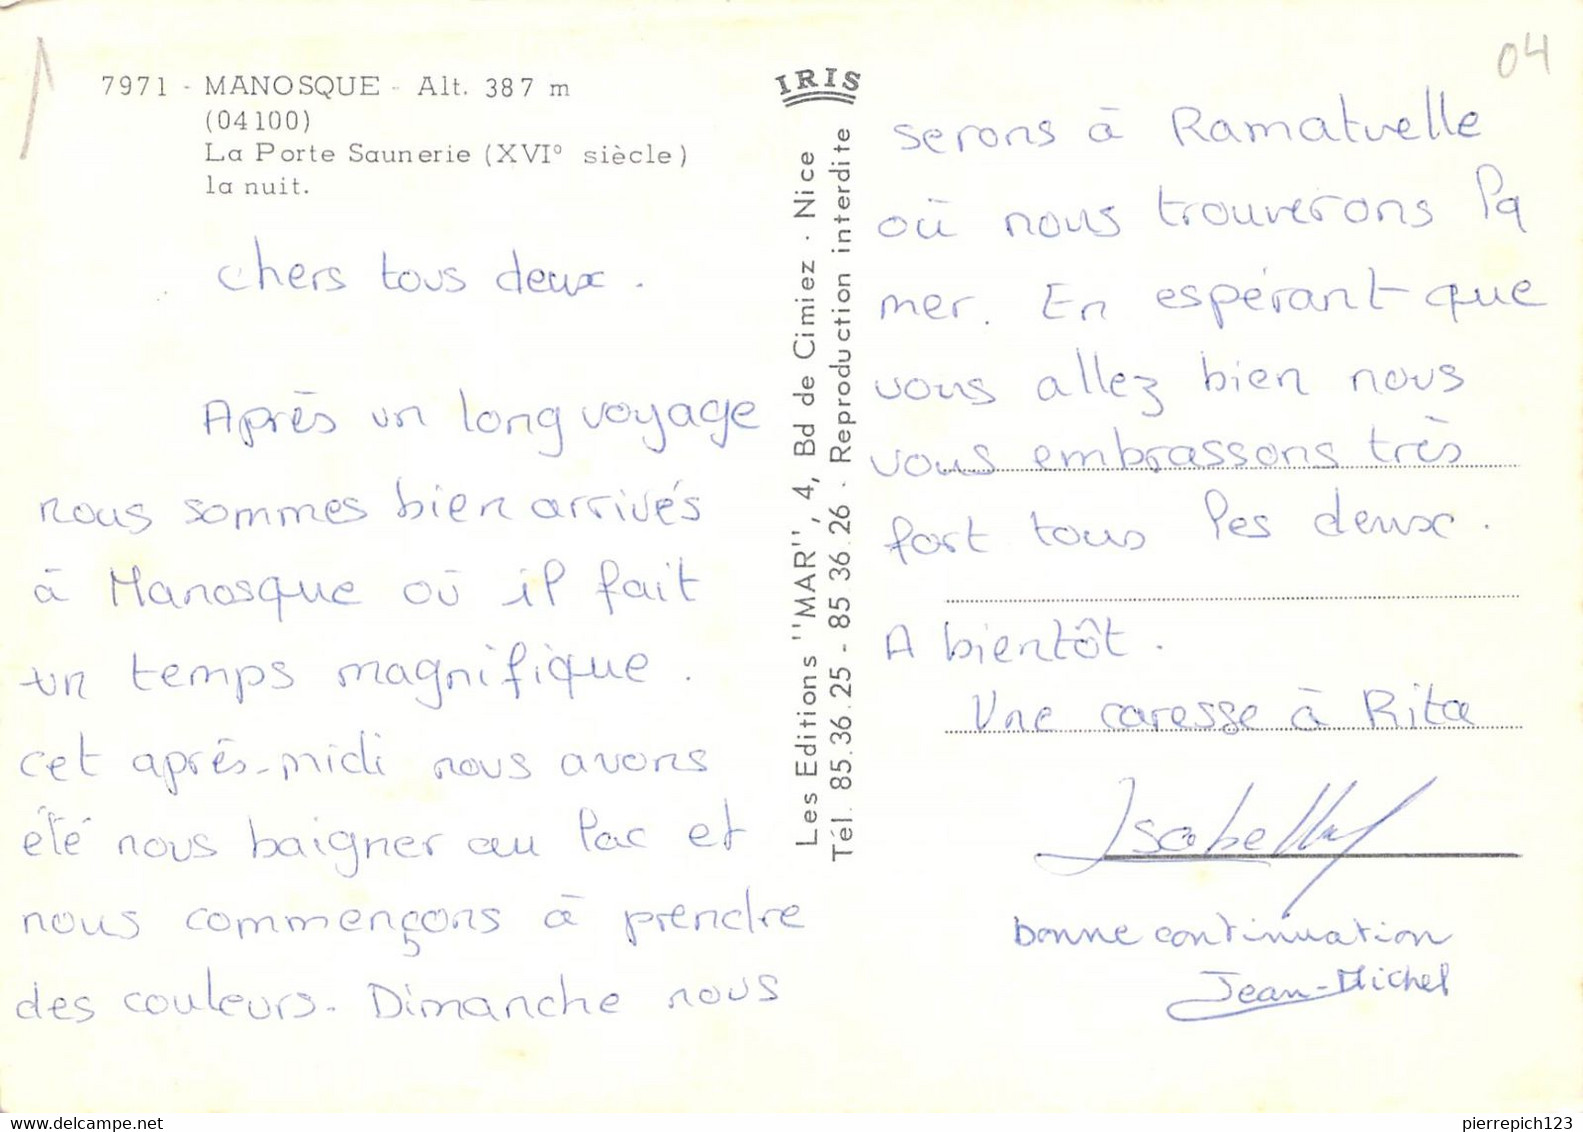 04
7971 - MANOSQUE - Alt. 387 m
(04100)
La Porte Saunerie (XVI° siècle)
la nuit.
chers tous deux.
Après un long voyage
nous sommes bien arrivés
à Manosque où il fait
un temps magnifique.
cet après-midi nous avons
été nous baigner au lac et
nous commençons à prendre
des couleurs. Dimanche nous
IRIS
Les Editions "MAR", 4, Bd de Cimiez - Nice
Tél. 85.36.25 - 85 36.26 - Reproduction interdite
serons à Ramatuelle
où nous trouverons la
mer. En espérant que
vous allez bien nous
vous embrassons très
fort tous les deux.
A bientôt.
Une caresse à Rita
Isabelle
bonne continuation
Jean-Michel
delcampe.net
pierrepich123